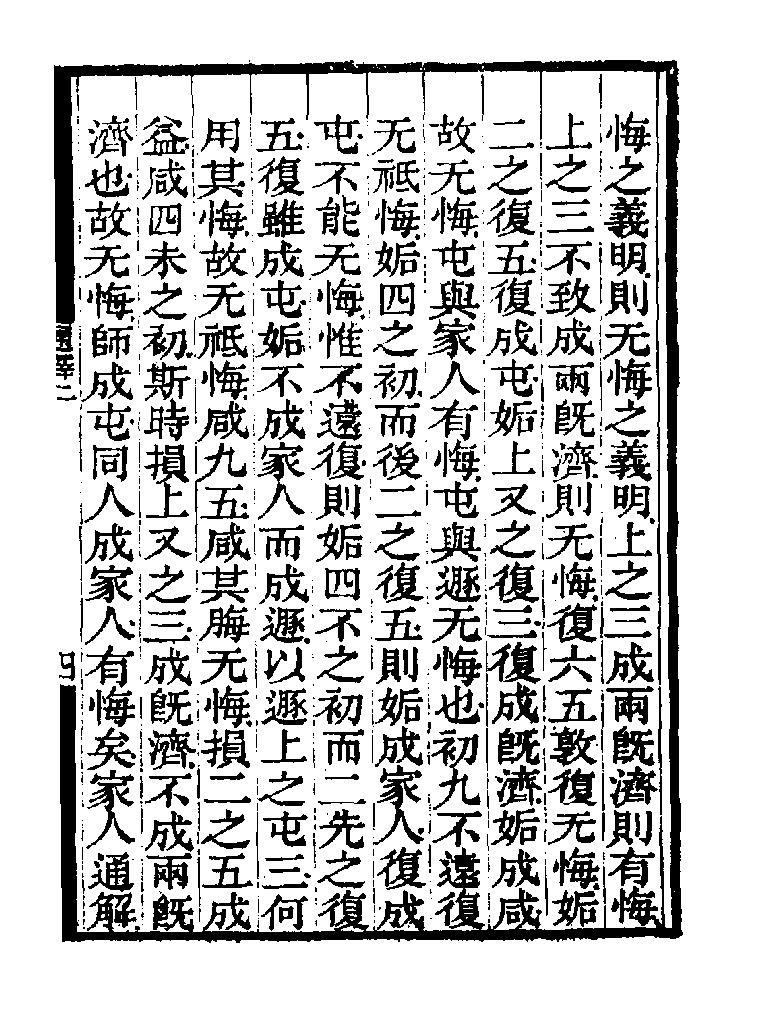 悔之義明則无悔之義明上之三成兩旣濟則有悔
上之三不致成兩旣濟則无悔復六五敦復无悔姤
二之復五復成屯姤上又之復三復成旣濟姤成咸
故无悔屯與家人有悔屯與遯无悔也初九不遠復
无祗悔姤四之初而後二之復五則姤成家人復成
屯不能无悔惟不遠復則姤四不之初而二先之復
五復雖成屯姤不成家人而成遯以遯上之屯三何
用其悔故无祗悔咸九五咸其脢无悔損二之五成
益咸四未之初斯時損上又之三成旣濟不成兩旣
濟也故无悔師成屯同人成家人有悔矣家人通解
通釋二
四